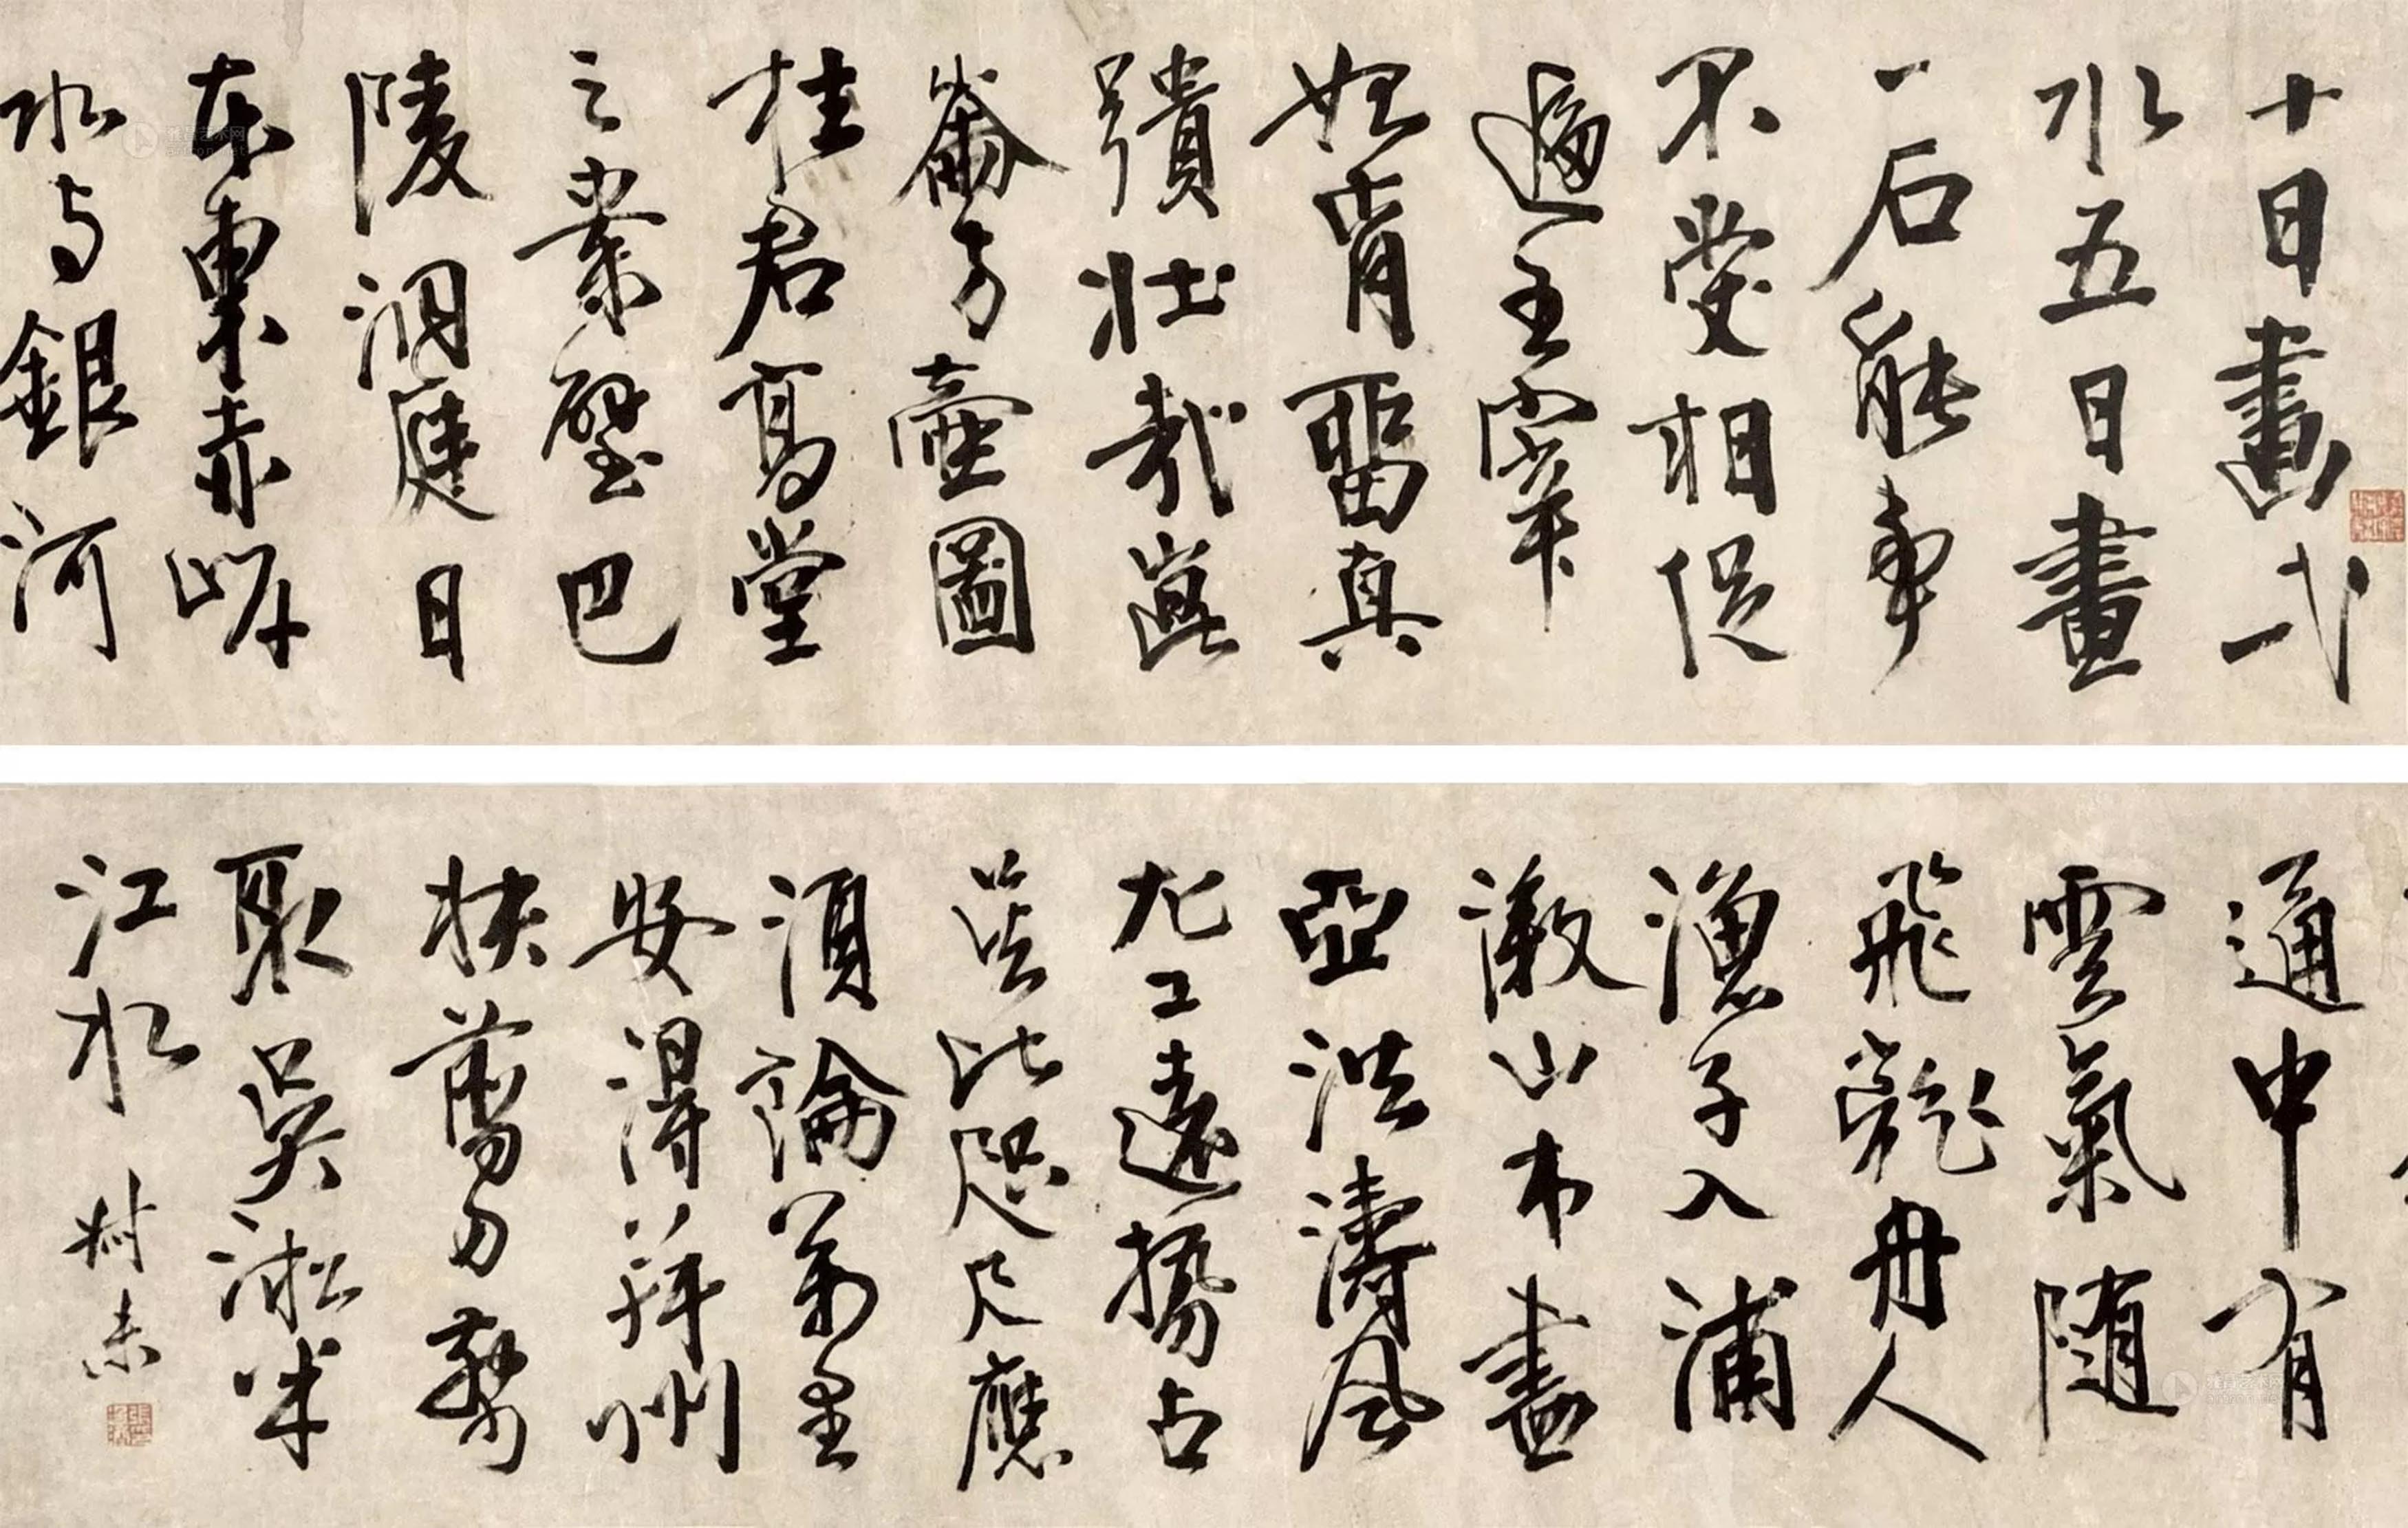 十日畫弌
水五日畫
一石能事
不受相促
逼王宰
始肯留真
蹟壯哉崑
崙方壺圖
挂君高堂
之素壁巴
陵洞庭日
本東赤岸
水与銀河
通中有
雲氣隨
飛龍舟人
漁子入浦
漵山木盡
亞洪濤風
尤工遠勢古
莫比咫尺應
須論萬里
安得并州
快剪刀剪
取吳淞半
江水